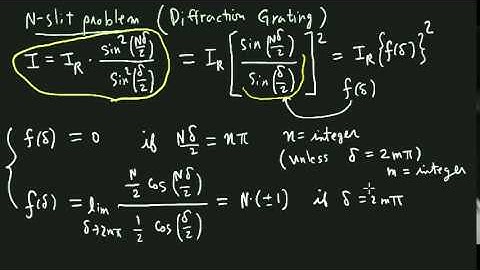 N-slit problem (Diffraction Grating)
I = I_R · sin²(Nδ/2) / sin²(δ/2) = I_R [ sin(Nδ/2) / sin(δ/2) ]² = I_R {f(δ)}²
f(δ)
f(δ) = 0 if Nδ/2 = nπ n = integer
(unless δ = 2mπ)
m = integer
f(δ) = lim δ→2mπ N/2 cos(Nδ/2) / 1/2 cos(δ/2) = N·(±1) if δ = 2mπ